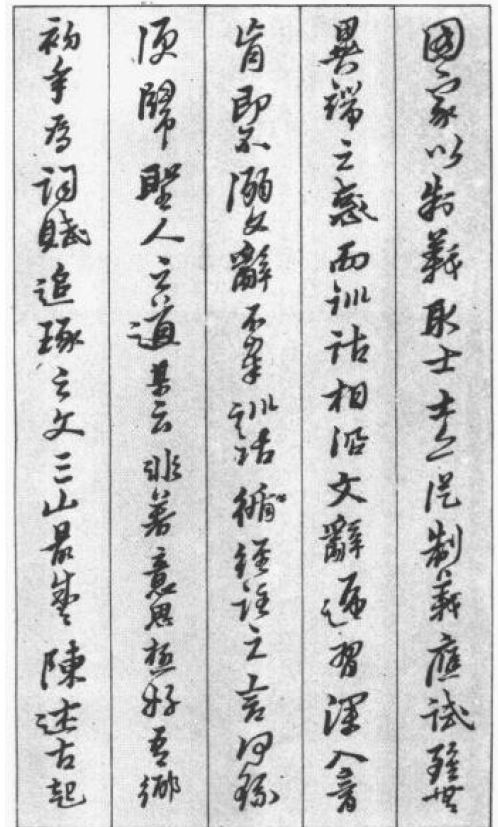 國家以制義取士士亦從制義應試雖無
異端之惑而訓詁相沿文辭遞習深入膏
肓即不溺文辭不牽訓詁循經註之言何緣
便歸聖人之道某云非著意思極好吾鄉
初年為詞賦追琢之文三山最盛陳述古起